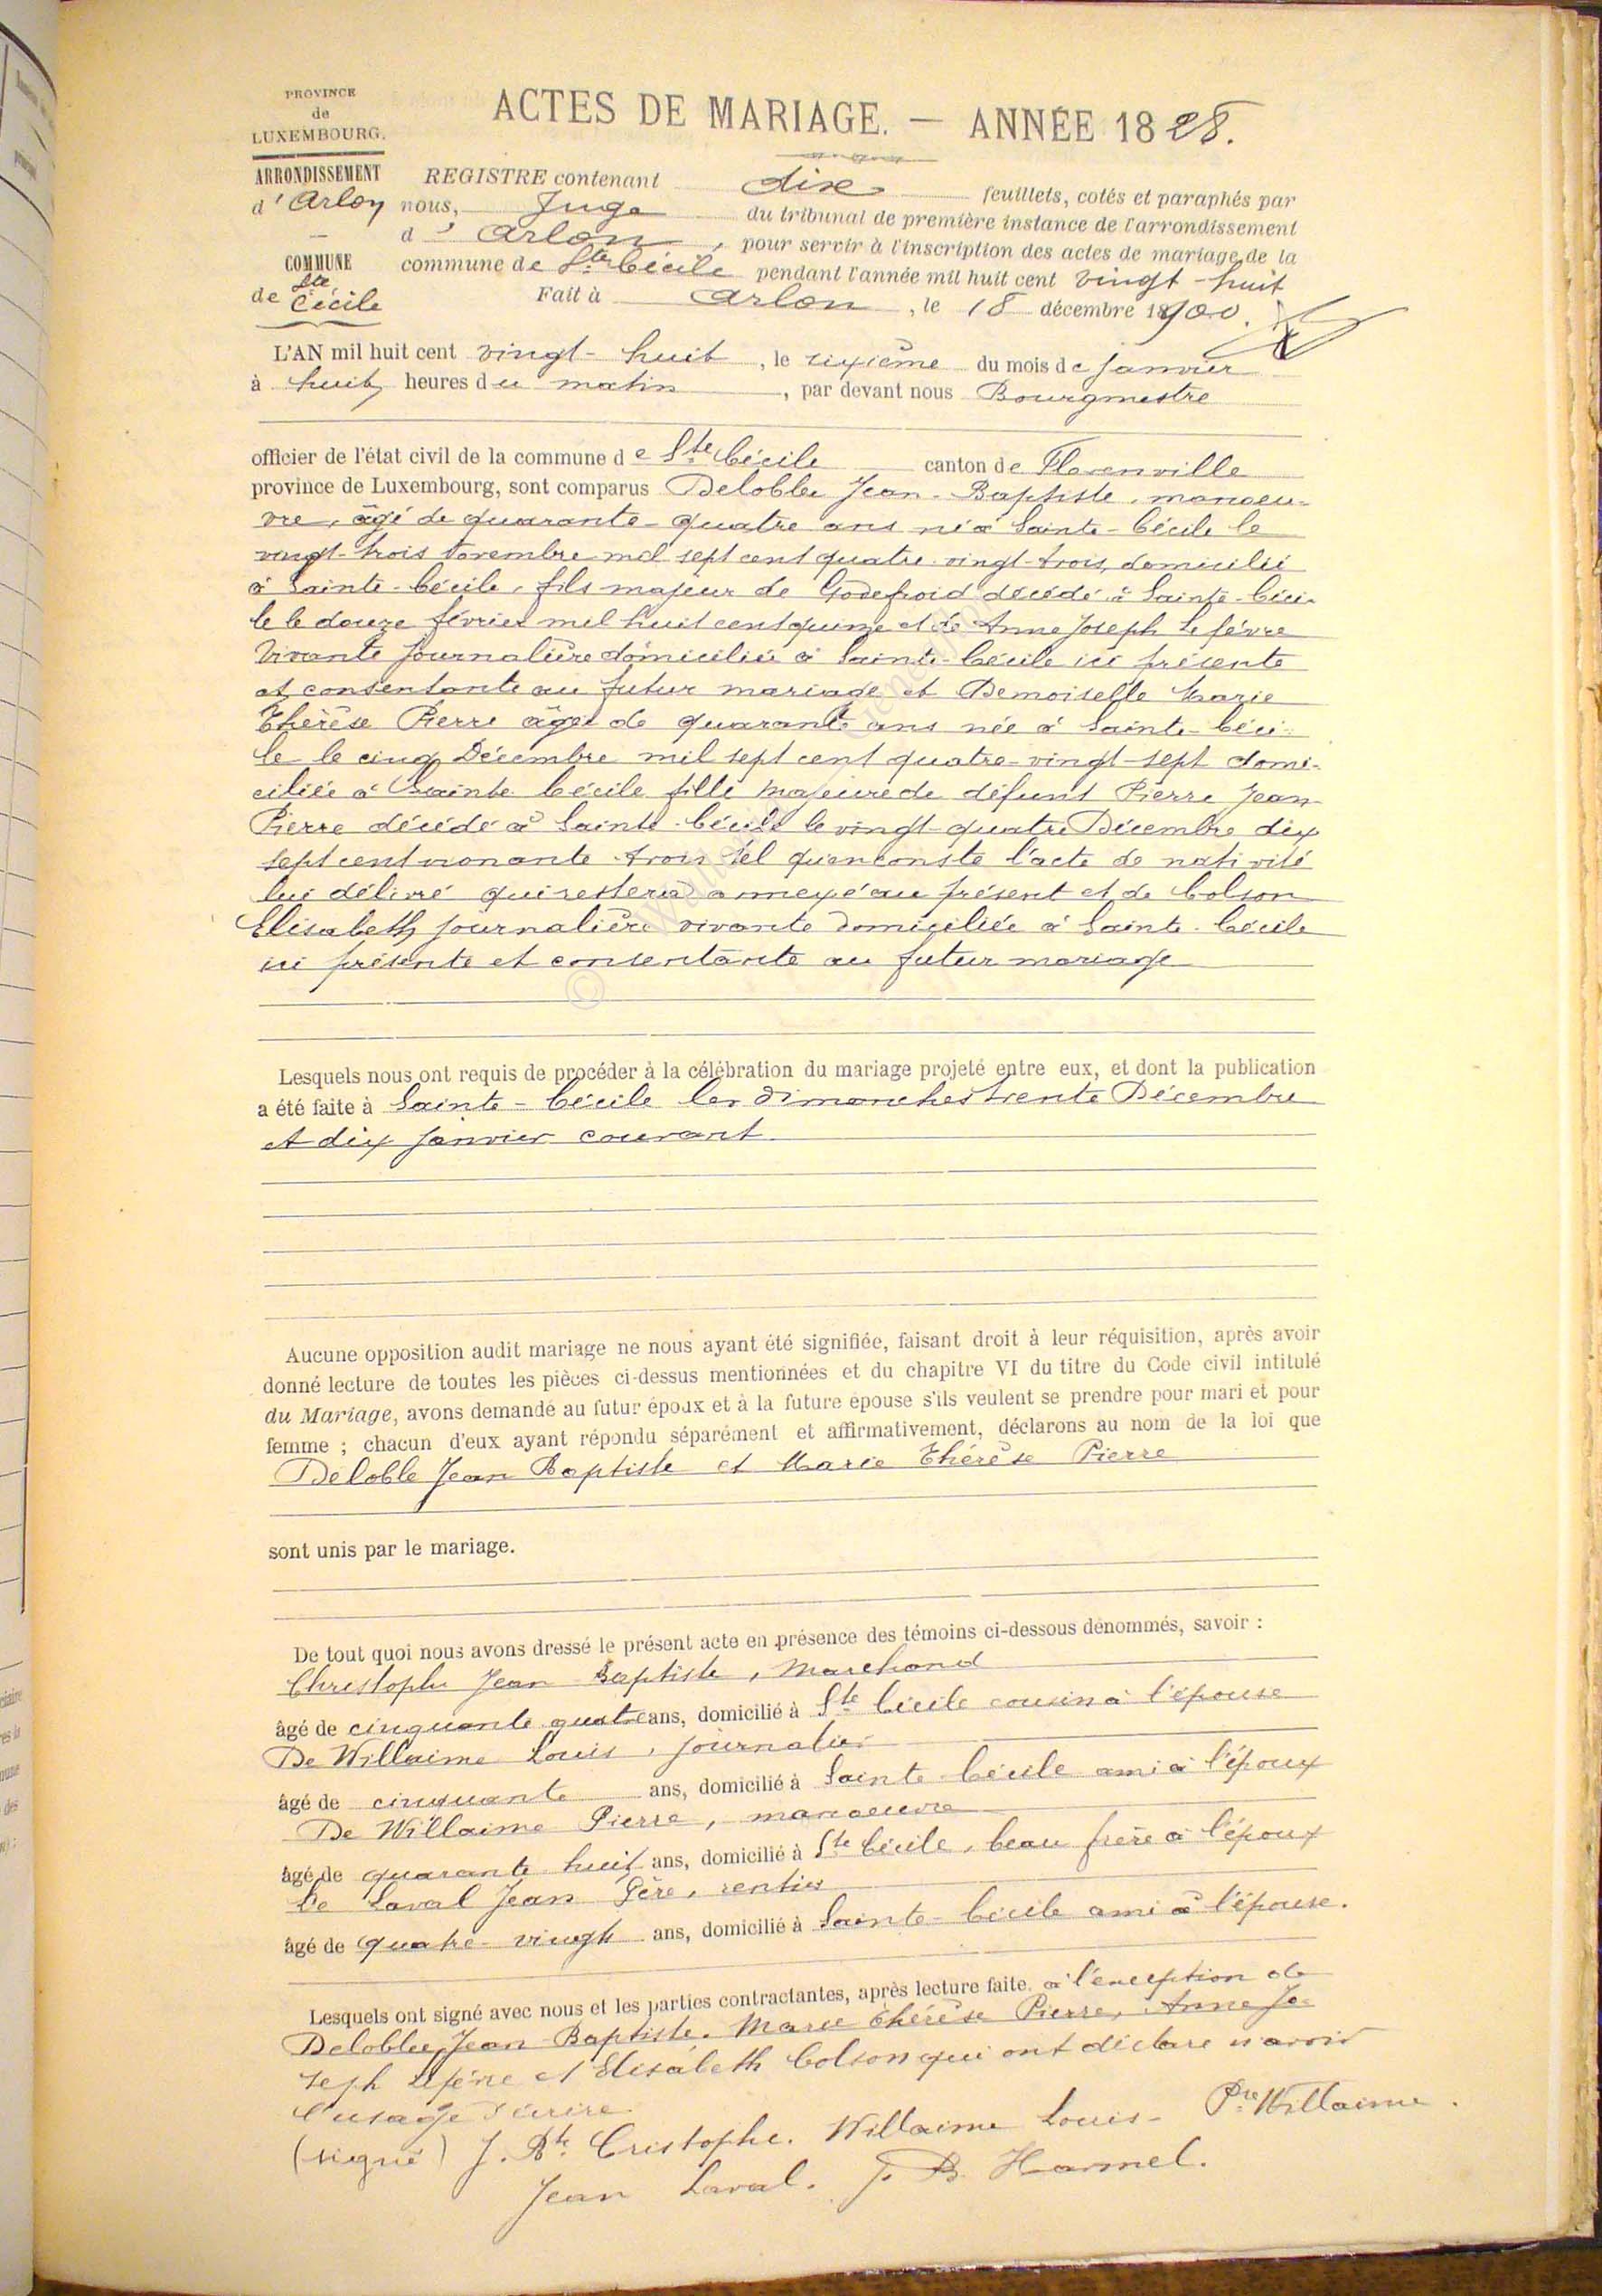 PROVINCE
de
LUXEMBOURG.
ACTES DE MARIAGE. — ANNÉE 1828.
ARRONDISSEMENT
d'Arlon
COMMUNE
de Ste Cécile
REGISTRE contenant dix feuillets, cotés et paraphés par
nous, Juge du tribunal de première instance de l'arrondissement
d'Arlon, pour servir à l'inscription des actes de mariage de la
commune de Ste Cécile pendant l'année mil huit cent vingt-huit
Fait à Arlon, le 18 décembre 1900.
L'AN mil huit cent vingt-huit, le sixième du mois de janvier
à huit heures du matin, par devant nous Bourgmestre
officier de l'état civil de la commune de Ste Cécile canton de Florenville
province de Luxembourg, sont comparus Deloblee Jean-Baptiste, manoeu-
vre, âgé de quarante-quatre ans né à Sainte-Cécile le
vingt-trois novembre mil sept cent quatre-vingt-trois, domicilié
à Sainte-Cécile, fils majeur de Godefroid décédé à Sainte-Céci-
le le douze février mil huit cent quinze et de Anne Joseph Lefévre
Vivante journalière domiciliée à Sainte-Cécile ici présente
et consentante au futur mariage et Demoiselle Marie
Thérèse Pierre âgée de quarante ans née à Sainte-Céci-
le le cinq Décembre mil sept cent quatre-vingt-sept domi-
ciliée à Sainte Cécile fille majeure de défunt Pierre Jean
Pierre décédé à Sainte-Cécile le vingt-quatre Décembre dix
sept cent nonante-trois tel qu'en conste l'acte de nativité
lui délivré qui restera annexé au présent et de Colson
Elisabeth journalière vivante domiciliée à Sainte-Cécile
ici présente et consentante au futur mariage
Lesquels nous ont requis de procéder à la célébration du mariage projeté entre eux, et dont la publication
a été faite à Sainte-Cécile les dimanches trente Décembre
et dix janvier courant.
Aucune opposition audit mariage ne nous ayant été signifiée, faisant droit à leur réquisition, après avoir
donné lecture de toutes les pièces ci-dessus mentionnées et du chapitre VI du titre du Code civil intitulé
du Mariage, avons demandé au futur époux et à la future épouse s'ils veulent se prendre pour mari et pour
femme ; chacun d'eux ayant répondu séparément et affirmativement, déclarons au nom de la loi que
Deloble Jean Baptiste et Marie Thérèse Pierre
sont unis par le mariage.
De tout quoi nous avons dressé le présent acte en présence des témoins ci-dessous dénommés, savoir :
Christophe Jean Baptiste, Marchand
âgé de cinquante quatre ans, domicilié à Ste Cécile cousin à l'épouse
De Willaime Louis, journalier
âgé de cinquante ans, domicilié à Sainte-Cécile ami à l'époux
De Willaime Pierre, manoeuvre
âgé de quarante huit ans, domicilié à Ste Cécile, beau frère à l'époux
De Laval Jean Père, rentier
âgé de quatre-vingt ans, domicilié à Sainte-Cécile ami à l'épouse.
Lesquels ont signé avec nous et les parties contractantes, après lecture faite, à l'exception de
Deloblee Jean-Baptiste, Marie Thérèse Pierre, Anne Jo-
seph Lefévre et Elisabeth Colson qui ont déclaré n'avoir
l'usage d'écrire.
(signé) J. Bte Cristophe. Willaime Louis- Pre Willaime.
Jean Laval. J. B. Harmel.